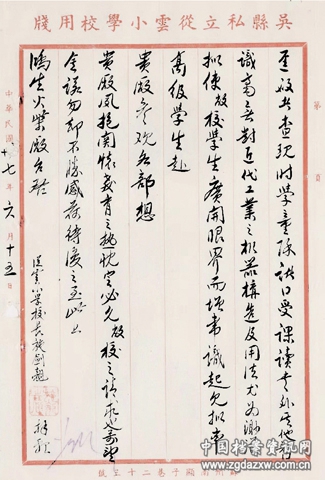 吳縣私立從雲小學校用牋
逕啟者查現時學童除 口受課讀書外其他
識 對近代工業之機器構造及用法尤為渺
擬使敝校學生廣開眼界而增常識起見擬率
高級學生赴
貴廠參觀各部想
貴廠夙抱關懷教育之熱忱定必允敝校之請求也
金諾勿却不勝感荷待復之至此上
鴻生火柴廠台鑒
從雲小學校長
中華民國十七年六月十五日
中国档案资讯网
www.zgdazxw.com.cn